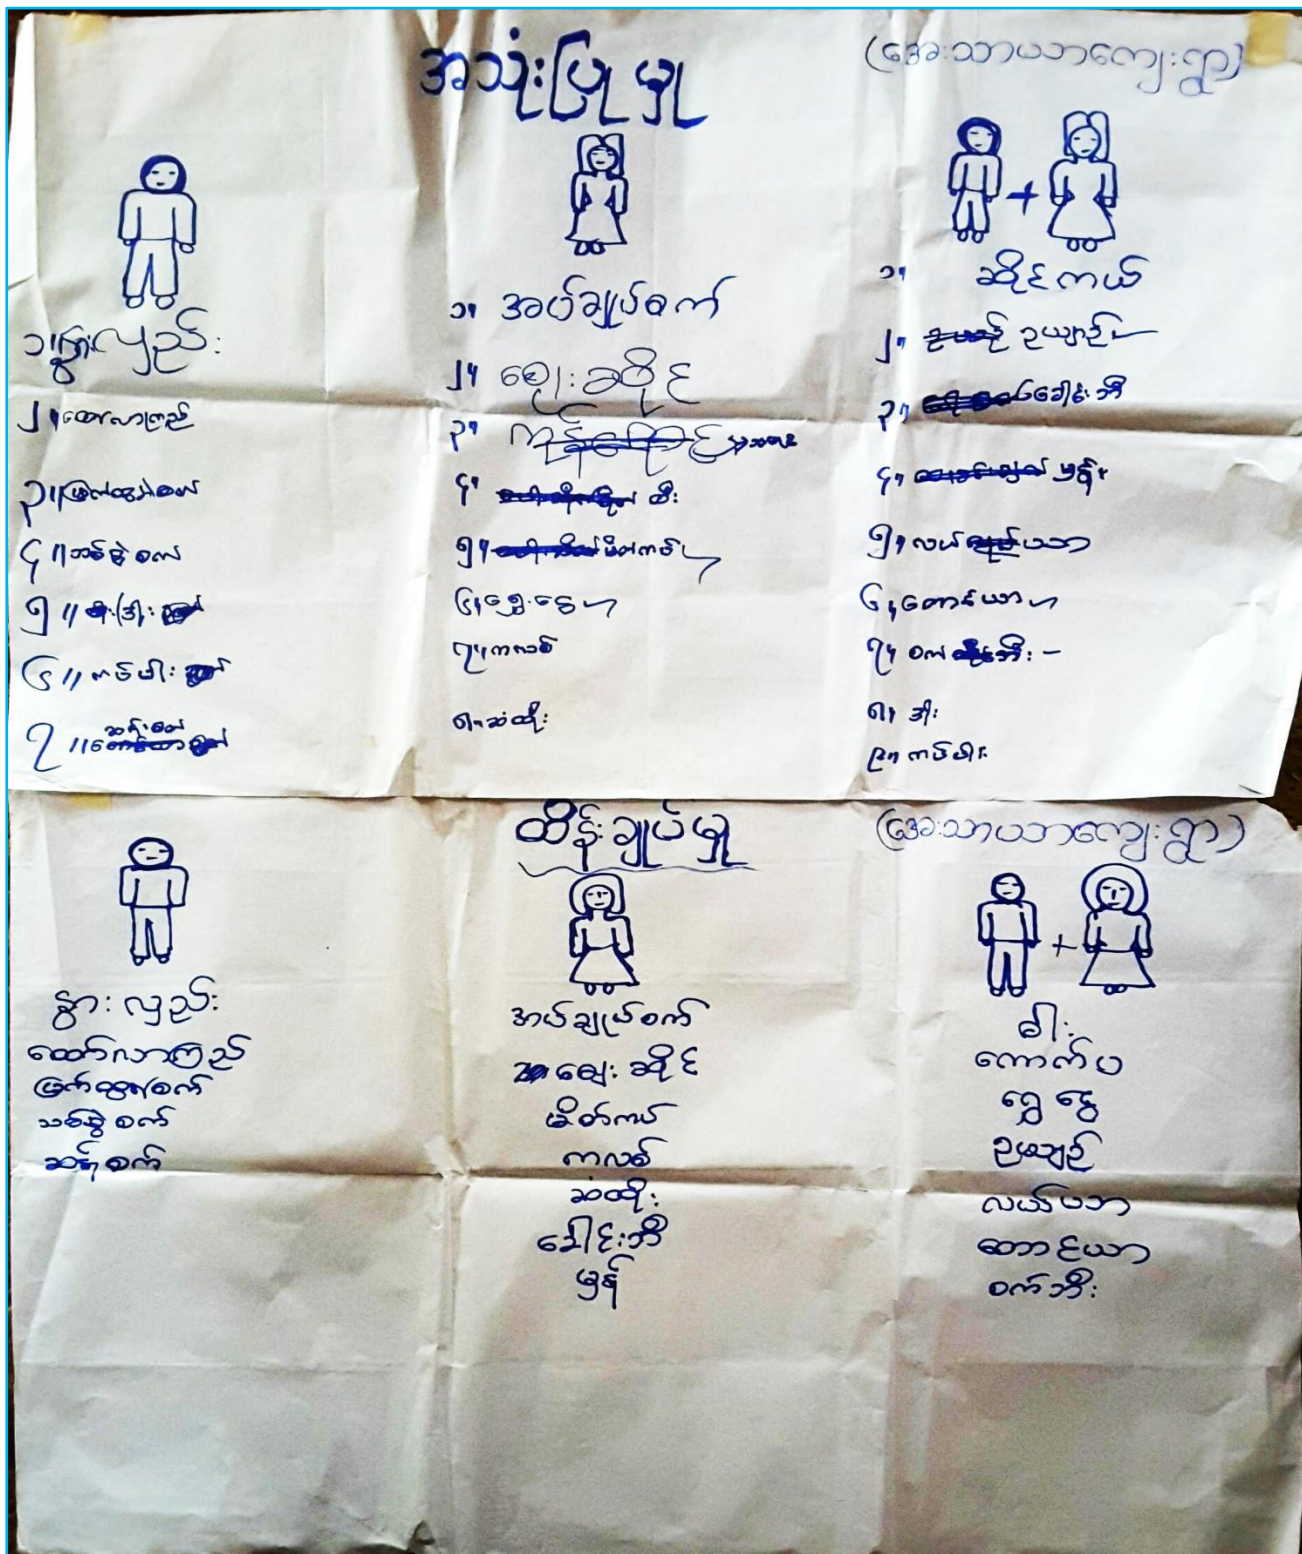 အသုံးပြုမှု
(အေးသာယာကျေးရွာ)
၁။ နွားလှည်း
၂။ ထော်လာဂျည်
၃။ မြက်ထွန်စက်
၄။ သစ်ခွဲစက်
၅။ ဓါး
၆။ ကင်မါး
၇။ ဆန်စက်
၁။ အပ်ချုပ်စက်
၂။ ဈေးဆိုင်
၃။
၄။ ထီး
၅။ မိတ်ကပ်
၆။ ရွှေငွေ
၇။ ကလစ်
၈။ ဆံထိုး
၁။ ဆိုင်ကယ်
၂။ ဥယျာဉ်
၃။ ခေါင်းဘီး
၄။ မှန်
၅။ လယ်ယာ
၆။ တောင်ယာ
၇။ စက်ဘီး
၈။ ဓါး
၉။
ထိန်းချုပ်မှု
(အေးသာယာကျေးရွာ)
နွားလှည်း
ထော်လာဂျည်
မြက်ထွန်စက်
သစ်ခွဲစက်
ဆန်စက်
အပ်ချုပ်စက်
ဈေးဆိုင်
မိတ်ကပ်
ကလစ်
ဆံထိုး
ခေါင်းဘီး
မှန်
ဓါး
ရွှေ ငွေ
ဥယျာဉ်
လယ်ယာ
တောင်ယာ
စက်ဘီး